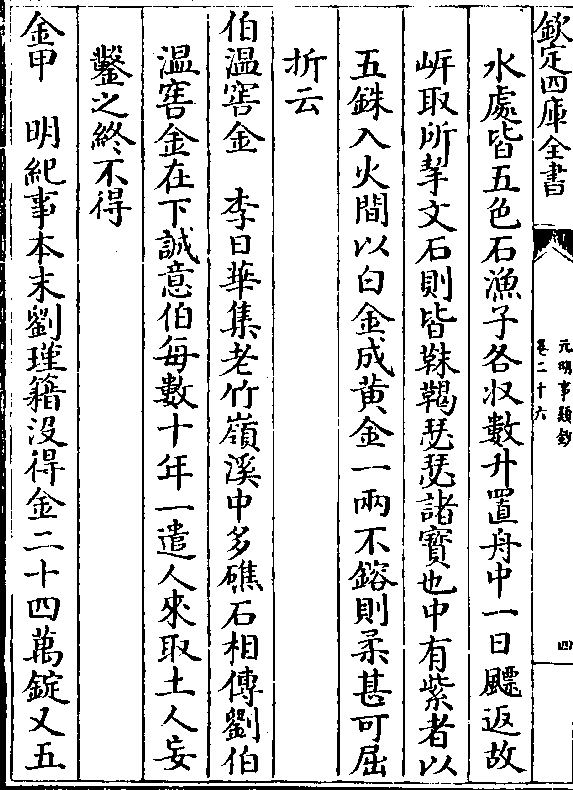 欽定四庫全書
元明事類鈔
卷二十六
四
水處皆五色石漁子各収數升置舟中一日飃返故
岍取所挈文石則皆靺鞨瑟瑟諸寶也中有紫者以
五銖入火間以白金成黄金一兩不鎔則柔甚可屈
折云
伯溫窖金　李日華集老竹嶺溪中多礁石相傳劉伯
溫窖金在下誠意伯每數十年一遣人來取土人妄
鑿之終不得
金甲　明紀事本末劉瑾籍没得金二十四萬錠又五